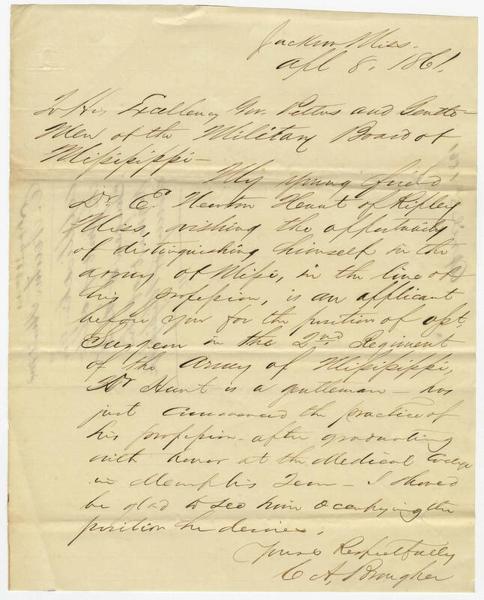 Jackson Miss.
Apl 8, 1861.
To His Excellency Gov. Pettus and Gentle-
men of the Military Board of
Mississippi-
My young friend
Dr E. Newton Hunt of Ripley
Miss, wishing the opportunity
of distinguishing himself in the
army of Miss, in the line of
his profession, is an applicant
before you for the position of asst.
Surgeon in the 2nd Regiment
of the Army of Mississippi,
Dr Hunt is a gentleman - has
just commenced the practice of
his profession - after graduating
with honor at the Medical College
in Memphis Tenn - I should
be glad to see him occupying the
position he desires.
Yours Respectfully
C A Brougher